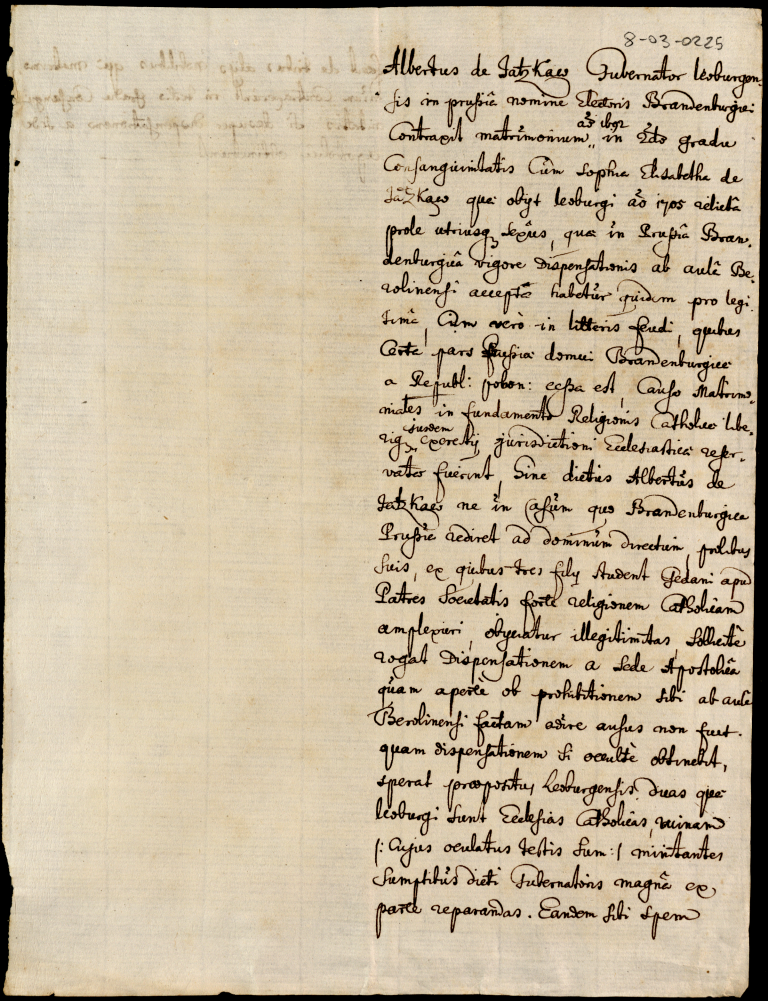 8-03-0225
Albertus de Jatzkaw Gubernator leoburgen-
sis in prussia nomine Electoris Brandenburgici
Contraxit matrimonium aõ 1692 in 2do gradu
Consanguinitatis Cum Sophia Elisabetha de
Jatzkaw quæ obyt leoburgi aõ 1705 relictâ
prole utriusq sexûs, quæ in Prussiâ Bran-
denburgicâ vigore Dispensationis ab aulâ Be-
rolinensi acceptæ habetur quidem pro legi-
timâ, Cum verò in litteris feudi, quibus
Certa pars Prussiæ domui Brandenburgicæ
a Republ: polon: cessa est, Causæ Matrimo-
niales in fundamento Religionis Catholicæ libe-
riq ejusdem exercitij jurisdictioni Ecclesiasticæ reser-
vatæ fuerint, Sine dictus Albertus de
Jatzkaw ne in Casum quo Brandenburgica
Prussia rediret ad dominum directum, prolibus
suis, ex quibus tres filij student Gedani apud
Patres Societatis forte religionem Catholicam
amplexuri, obijciatur illegitimitas, sollicitè
rogat Dispensationem a Sede Apostolicâ
quam apertè ob prohibitionem sibi ab aulâ
Berolinensi factam adire ausus non fuit.
quam dispensationem si occultè obtinebit,
sperat præpositus Leoburgensis duas quæ
leoburgi sunt Ecclesias Catholicas, ruinam
/: Cujus oculatus testis sum :/ minitantes
sumptibus dicti Gubernatoris magnâ ex
parte reparandas. Eandem sibi spem